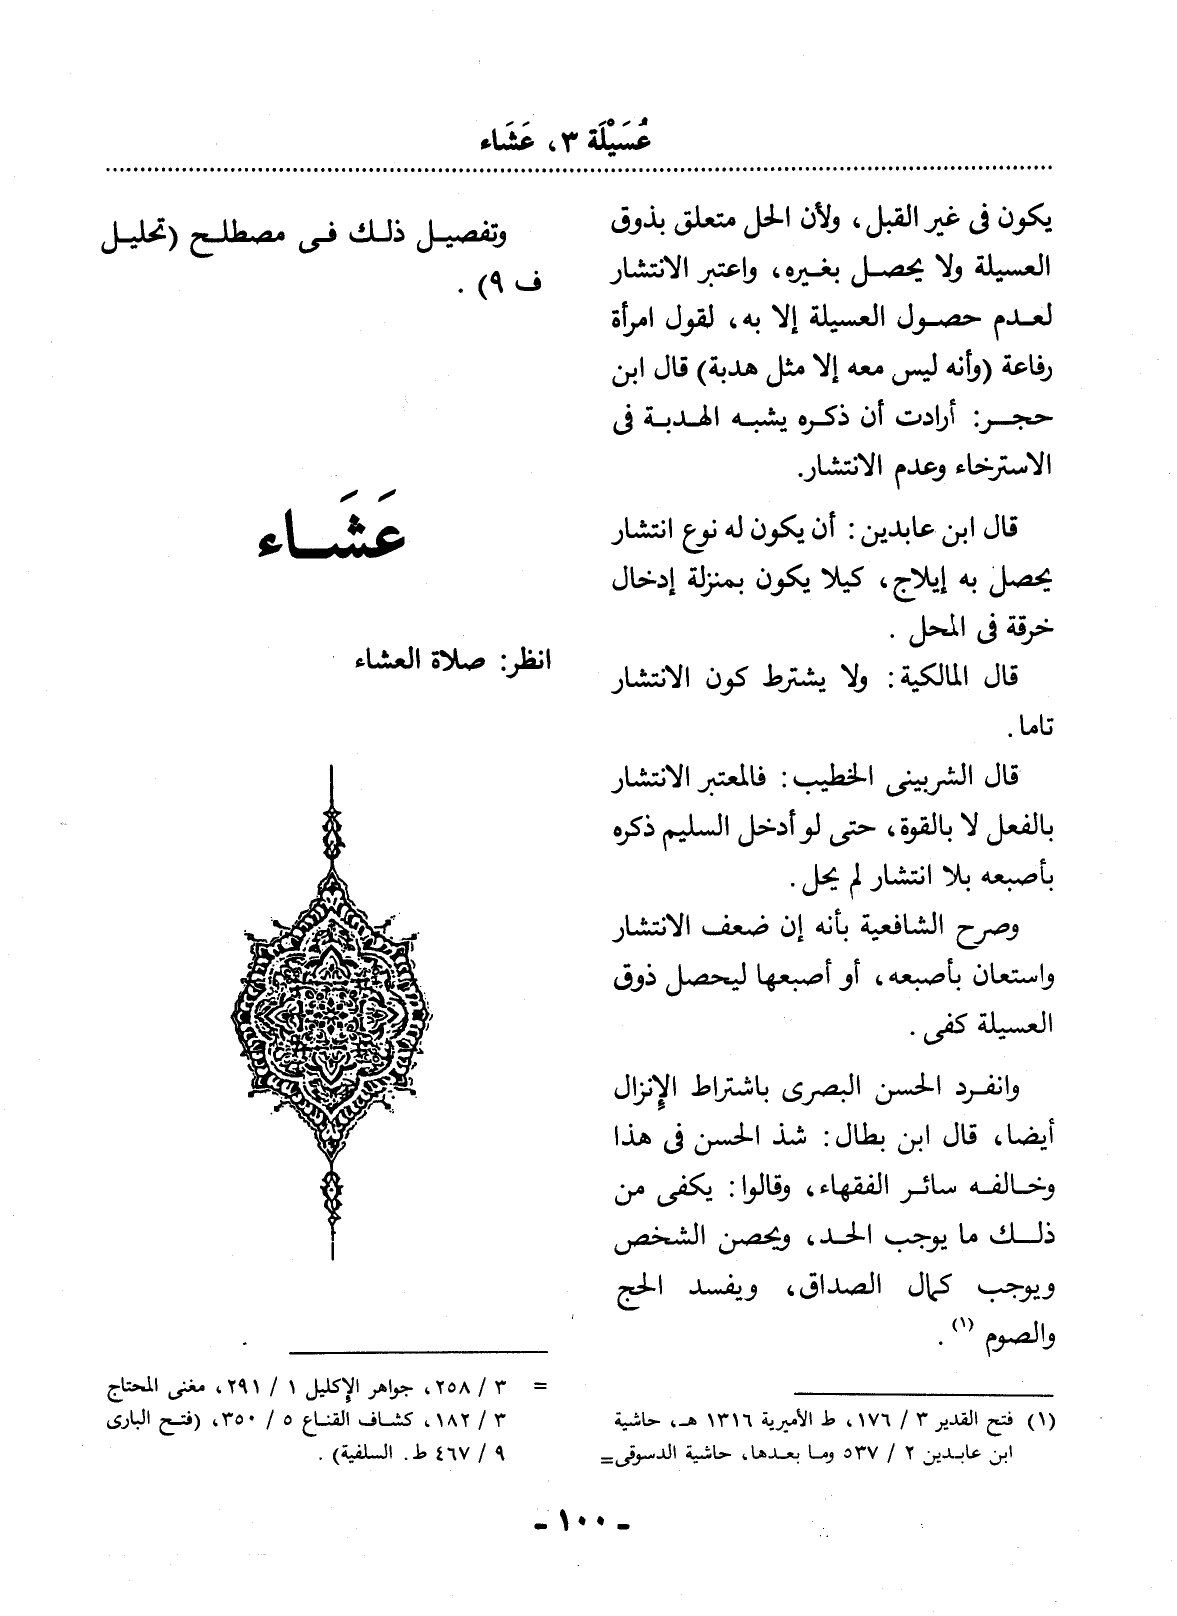 عُسَيْلَة ٣، عَشَاء
يكون فى غير القبل، ولأن الحل متعلق بذوق
العسيلة ولا يحصل بغيره، واعتبر الانتشار
لعدم حصول العسيلة إلا به، لقول امرأة
رفاعة (وأنه ليس معه إلا مثل هدبة) قال ابن
حجر: أرادت أن ذكره يشبه الهدبة فى
الاسترخاء وعدم الانتشار.
قال ابن عابدين: أن يكون له نوع انتشار
يحصل به إيلاج، كيلا يكون بمنزلة إدخال
خرقة فى المحل .
قال المالكية: ولا يشترط كون الانتشار
تاما.
قال الشربينى الخطيب: فالمعتبر الانتشار
بالفعل لا بالقوة، حتى لو أدخل السليم ذكره
بأصبعه بلا انتشار لم يحل.
وصرح الشافعية بأنه إن ضعف الانتشار
واستعان بأصبعه، أو أصبعها ليحصل ذوق
العسيلة كفى.
وانفرد الحسن البصرى باشتراط الإنزال
أيضا، قال ابن بطال: شذ الحسن فى هذا
وخالفه سائر الفقهاء، وقالوا: يكفى من
ذلك ما يوجب الحد، ويحصن الشخص
ويوجب كمال الصداق، ويفسد الحج
والصوم (١) .
(١) فتح القدير ٣ / ١٧٦، ط الأميرية ١٣١٦ هـ، حاشية
ابن عابدين ٢ / ٥٣٧ وما بعدها، حاشية الدسوقى=
وتفصيل ذلك فى مصطلح (تحليل
ف ٩) .
عَشَاء
انظر: صلاة العشاء
= ٣ / ٢٥٨، جواهر الإكليل ١ / ٢٩١، مغنى المحتاج
٣ / ١٨٢، كشاف القناع ٥ / ٣٥٠، (فتح البارى
٩ / ٤٦٧ ط. السلفية) .
- ١٠٠ -